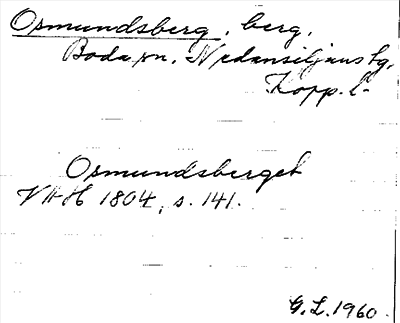 Osmundsberg, berg,
Boda sn. Nedansiljans tg,
Kopp. l.
Osmundsberget
VAH 1804, s. 141.
G. L. 1960.